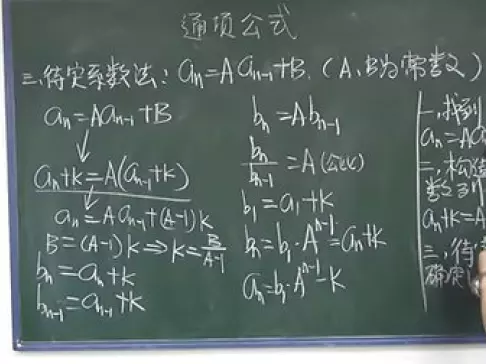 通项公式
三、待定系数法：aₙ=Aaₙ₋₁+B.（A、B为常数）
aₙ=Aaₙ₋₁+B
aₙ+k=A(aₙ₋₁+k)
aₙ=Aaₙ₋₁+(A-1)k
B=(A-1)k⇒k=B/(A-1)
bₙ=aₙ+k
bₙ₋₁=aₙ₋₁+k
bₙ=Abₙ₋₁
bₙ/bₙ₋₁=A(公比)
b₁=a₁+k
bₙ=b₁·Aⁿ⁻¹=aₙ+k
aₙ=b₁·Aⁿ⁻¹-k
一、找到
aₙ=Aa
二、构造
数列
aₙ+k=A
三、待
确定